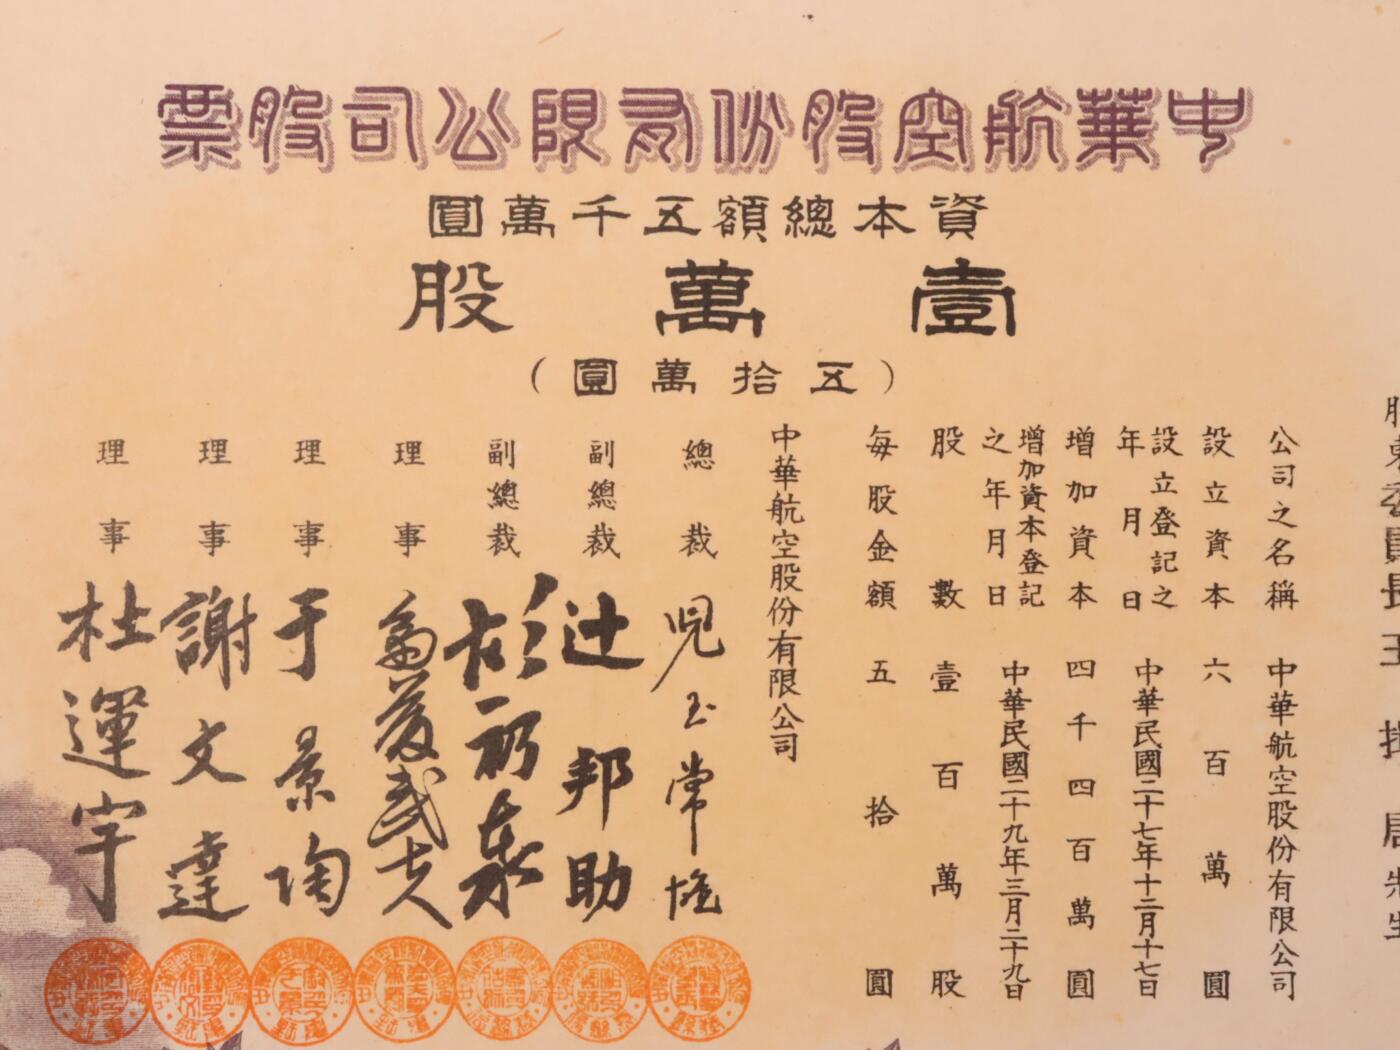 中華航空股份有限公司股票
資本總額五千萬圓
壹萬股
（五拾萬圓）
公司之名稱 中華航空股份有限公司
設立資本 六百萬圓
設立登記之年月日 中華民國二十七年十二月十七日
增加資本 四千四百萬圓
增加資本登記之年月日 中華民國二十九年三月二十九日
股數 壹百萬股
每股金額 五拾圓
中華航空股份有限公司
總裁 兒玉常雄
副總裁 辻邦助
副總裁
理事
理事 于景陶
理事 謝文達
理事 杜運宇